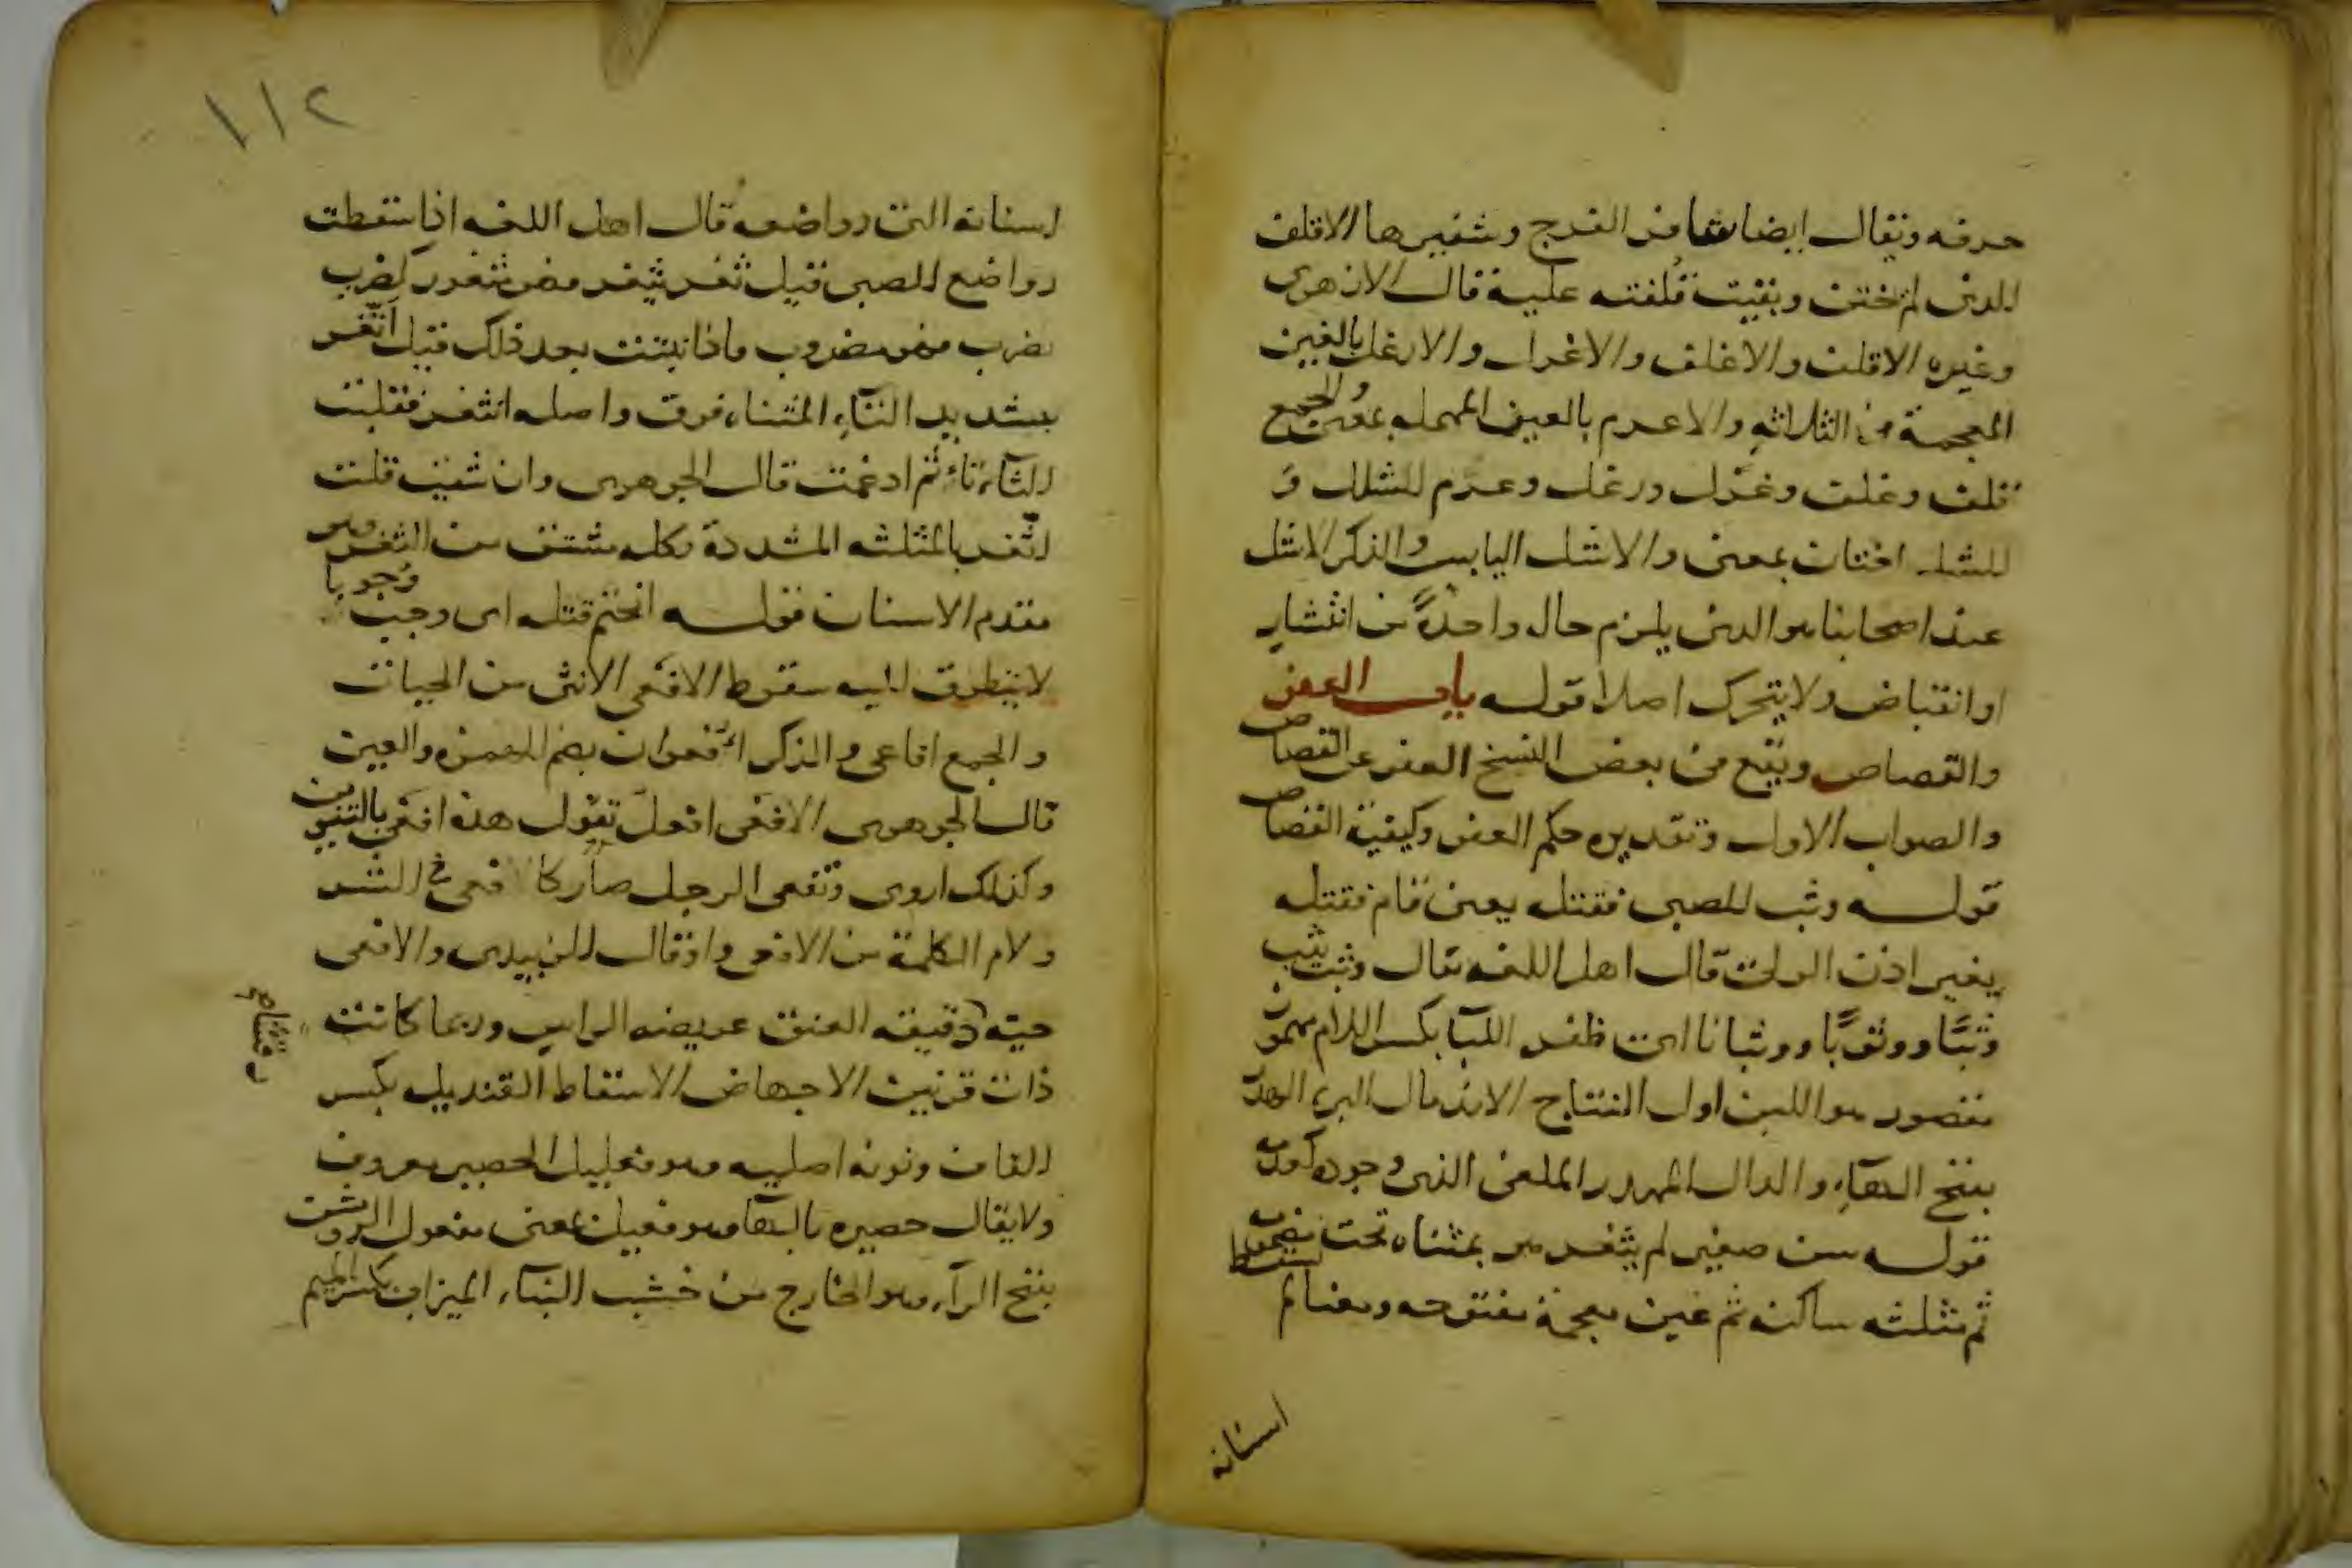 حرفه ويقال ايضا شفا من الفرج وشفيرها الاقلف
الذي لم يختن وبقيت قلفته عليه قال الازهري
وغيره الاقلف والاغلف والاغرل والارغل بالغين
المعجمة في الثلاثة والاعرم بالعين المهملة بمعنى والجمع
قلف وغلف وغرل ورغل وعرم للشلل و
للشلل لغتان بمعنى والاشل اليابس والذكر الاشل
عند اصحابنا هو الذي يلزم حال واحدة من انتشار
او انقباض ولا يتحرك اصلا قوله باب العفو
والقصاص ويقع في بعض النسخ العفو عن القصاص
والصواب الاول وتقديره حكم العفو وكيفية القصاص
قوله وثب للصبي فقتله يعني قام فقتله
بغير اذن الولي قال اهل اللغه يقال وثب يثب
وثبًا ووثوبًا ووثبانا اي ظفر اللبا بكسر اللام مهموز
مقصور هو اللبن اول النتاج الاندمال البرء الهدر
بفتح الهاء والدال المهدر الملغى الذي وجوده كعدمه
قوله سن صغير لم يثغر هو بمثناه تحت مضمومه
ثم مثلثه ساكنه ثم غين معجمة مفتوحه ومعناه لم تسقط
اسنانه
١١٢
اسنانه التي رواضعه قال اهل اللغه اذا سقطت
رواضع الصبي قيل ثغر يثغر فهو مثغور كضرب
يضرب فهو مضروب فاذا نبتت بعد ذلك قيل اتّغر
بتشديد التآء المثناه فوق واصله اثتغر فقلبت
الثآء تاء ثم ادغمت قال الجوهري وان شئت قلت
اثّغر بالمثلثه المشددة وكله مشتق من الثغر وهو
مقدم الاسنان قوله انحتم قتله اي وجب وجوبا
لا يتطرق اليه سقوط الافعى الانثى من الحيات
والجمع افاعي والذكر اُفعوان بضم الهمزه والعين
قال الجوهري الافعى افعل تقول هذه افعًى بالتنوين
وكذلك اروى وتفعى الرجل صار كالافعى في الشر
ولام الكلمة من الافعى واو قال الزبيدي والافعى
حية دقيقه العنق عريضه الراس وربما كانت
ذات قرنين الاجهاض الاسقاط القنديل بكسر
القاف ونونه اصليه وهو فعليل الحصير معروف
ولا يقال حصيره بالهآ وهو فعيل بمعنى مفعول الروشن
بفتح الرآء وهو الخارج من خشب البناء الميزاب بكسر الميم